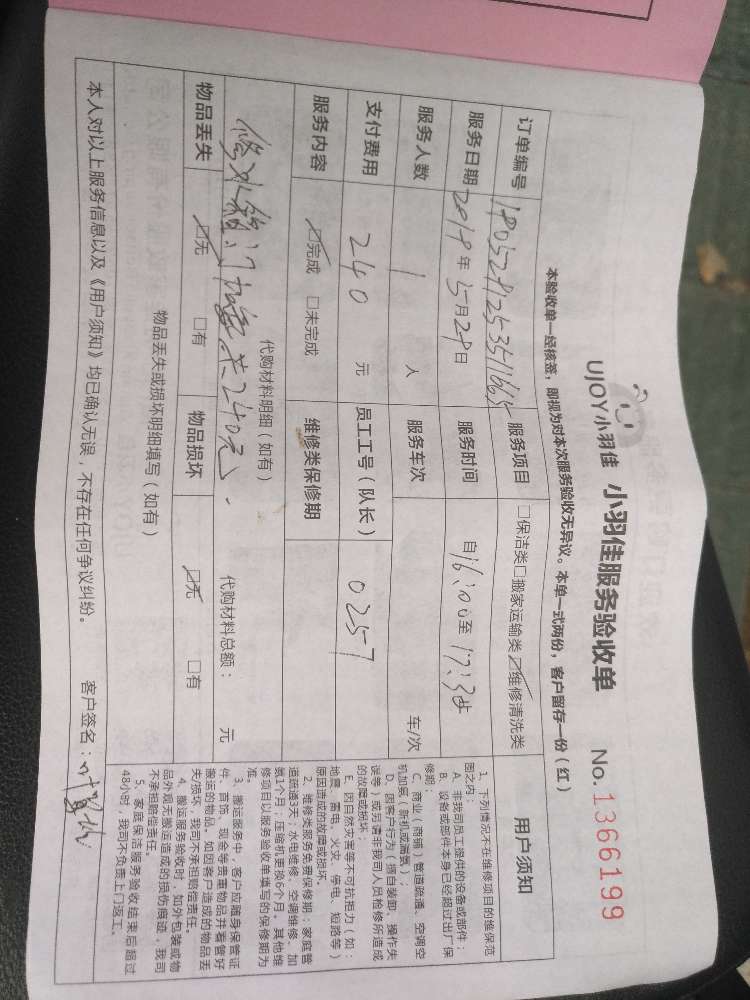 UJOY小羽佳 小羽佳服务验收单 No.1366199
本验收单一经核签，即视为对本次服务验收无异议。本单一式两份，客户留存一份（红）
订单编号 服务项目 □保洁类□搬家运输类☑维修清洗类
服务日期 2019年5月29日 服务时间 自16:00至17:30
服务人数 1 人 服务车次 车/次
支付费用 240 元 员工工号（队长） 0257
服务内容 ☑完成 □未完成 维修类保修期
代购材料明细（如有） 代购材料总额： 元
修水箱门 共240元.
物品丢失 ☑无 □有 物品损坏 ☑无 □有
物品丢失或损坏明细填写（如有）
本人对以上服务信息以及《用户须知》均已确认无误，不存在任何争议纠纷。 客户签名：
用户须知
1、下列情况不在维修项目的维保范
围之内：
A、非我司员工提供的设备或部件；
B、设备或部件本身已经超过出厂保
修期；
C、商业（商铺）管道疏通、空调空
机加氨（新机或漏氨）；
D、因客户行为（擅自装卸、操作失
误等）或另请非我司人员检修所造成
的故障或损坏；
E、因自然灾害等不可抗拒力（如：
地震、雷电、火灾、停电、短路等）
原因造成的故障或损坏。
2、维修类服务免费保修期：家庭管
道疏通3天；水电维修、空调维修、加
氨1个月；压缩机更换6个月。其他维
修项目以服务验收单填写的保修期为
准。
3、搬运服务中，客户应随身保管证
件、首饰、现金等贵重物品并看管好
搬运的物品。如因客户造成的物品丢
失/损坏，我司不承担赔偿责任。
4、搬运服务验收时，如外包装或物
品外观无搬运造成的损伤痕迹，我司
不承担赔偿责任。
5、家庭保洁服务验收结束后超过
48小时，我司不负责上门返工。